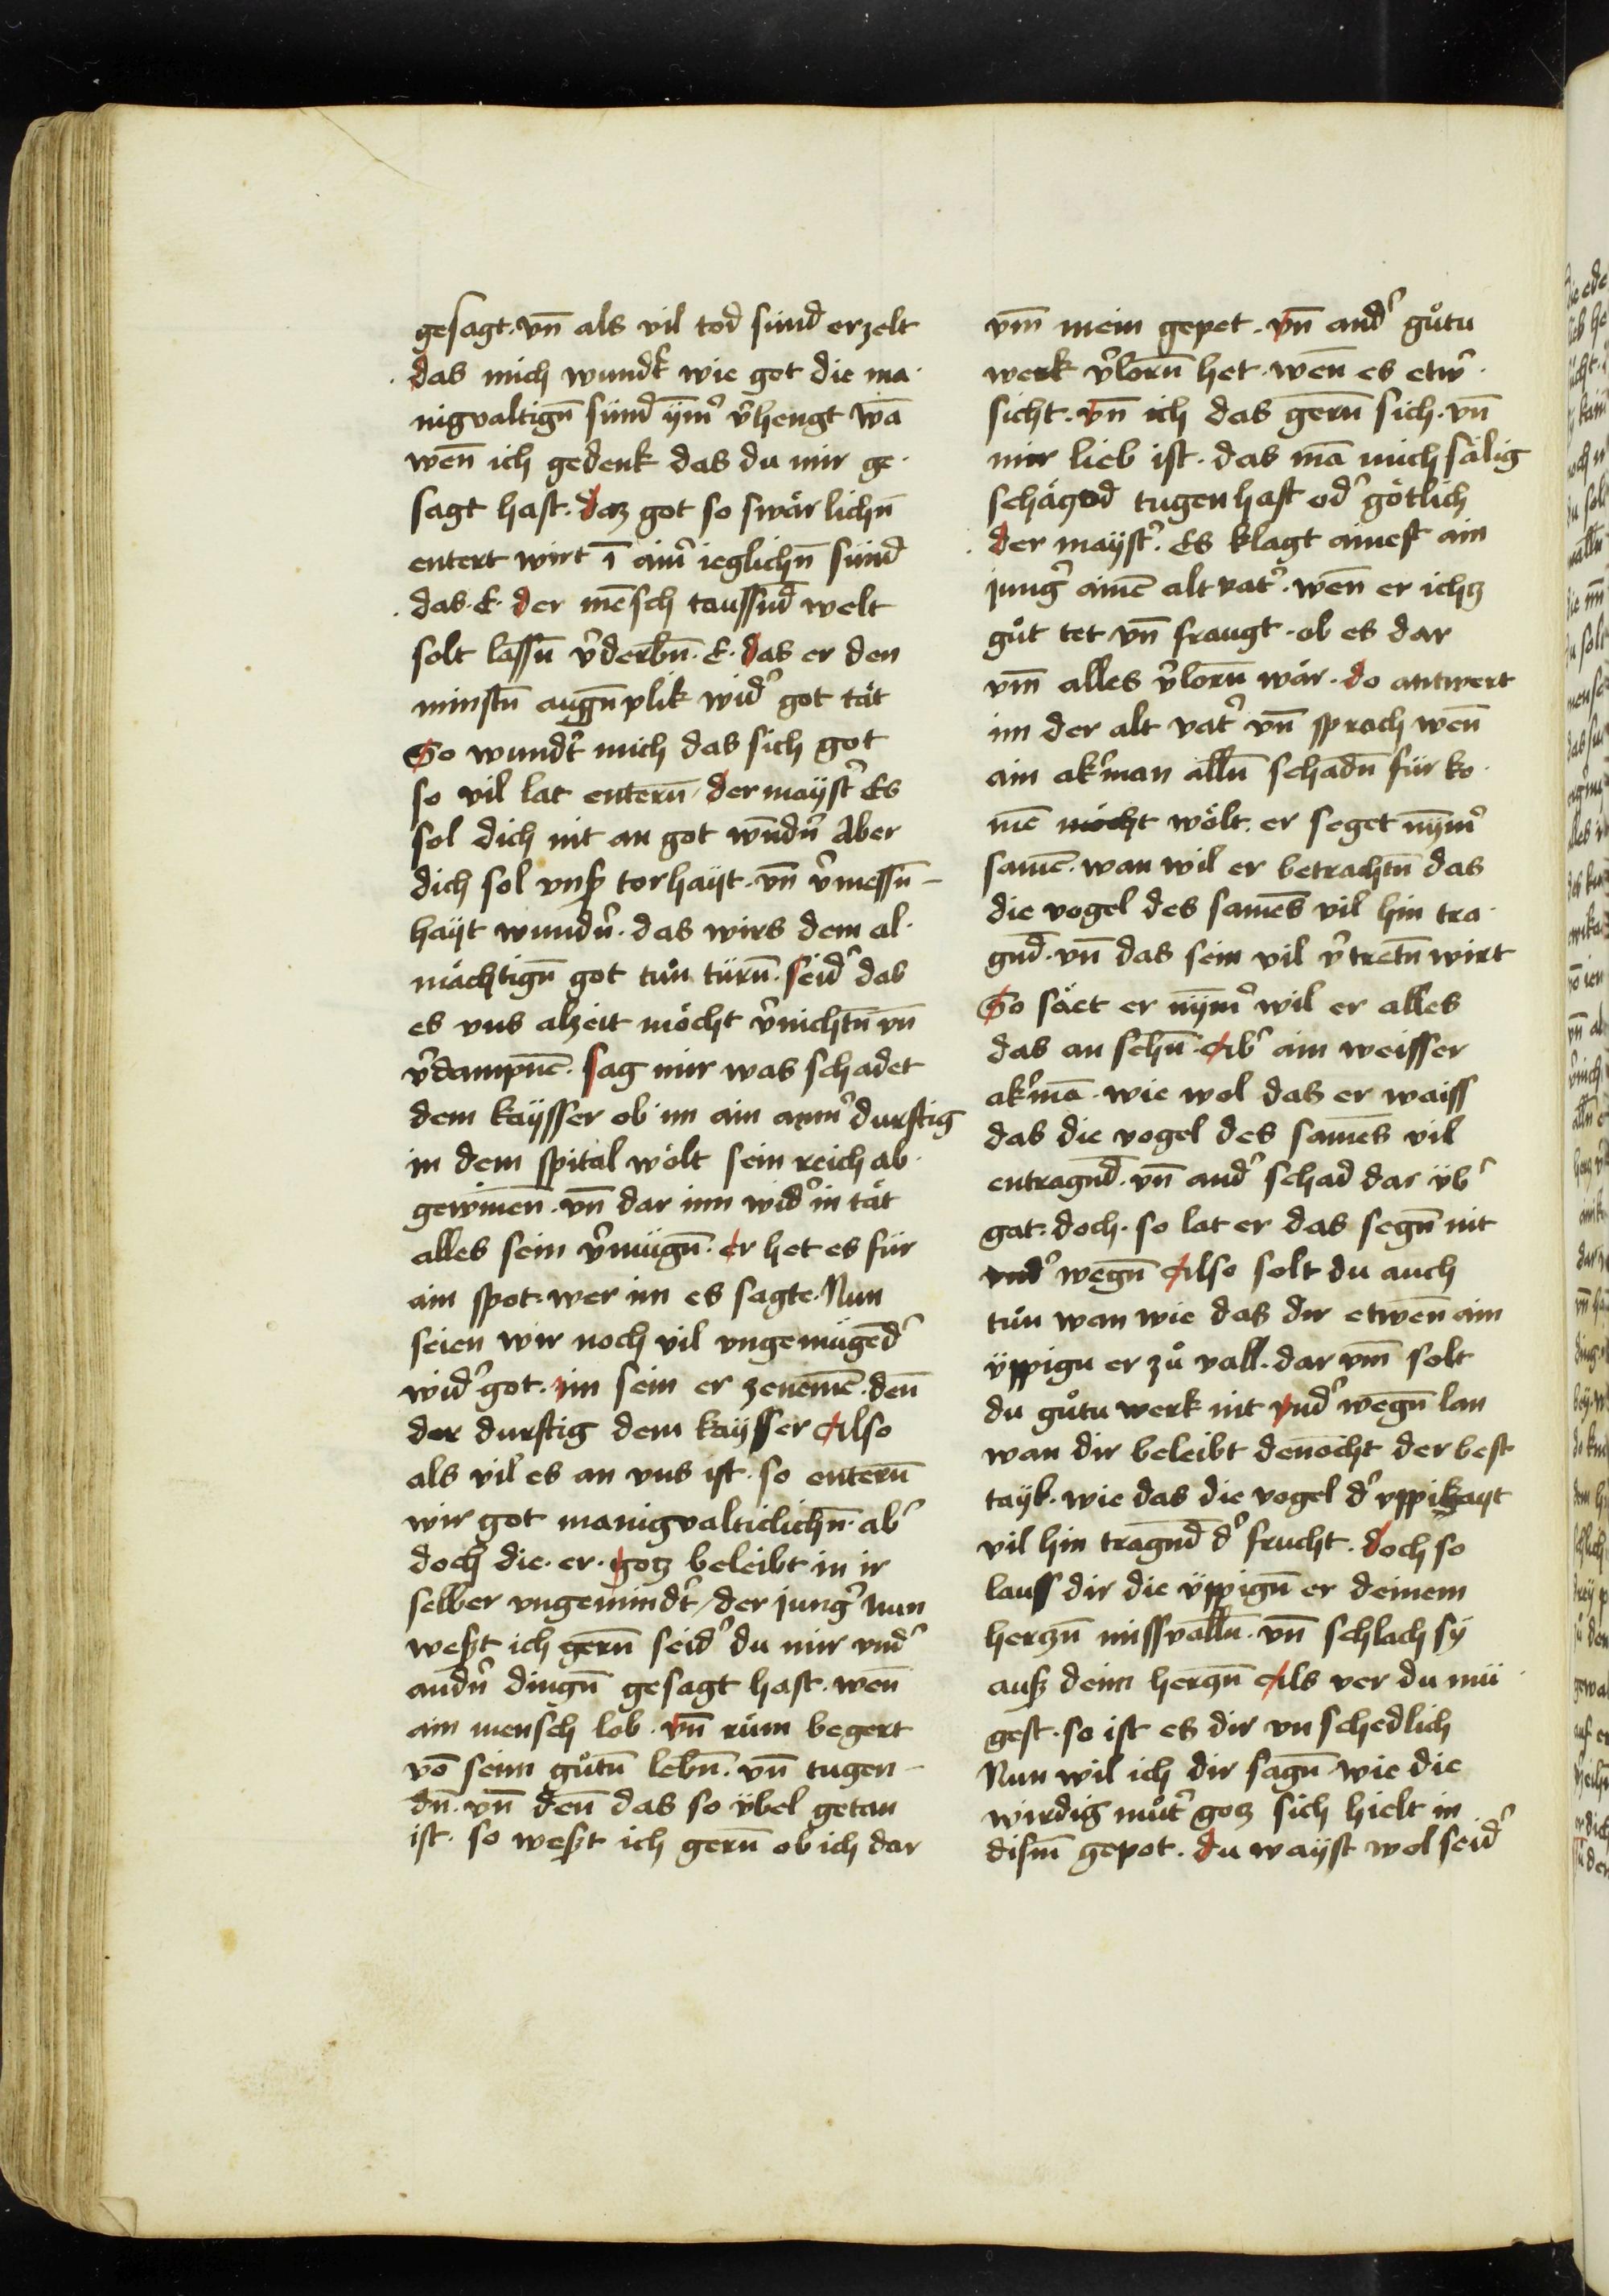 gesagt · vn̄ als vil tod sünd erzelt
das mich wundt᷑ wie got die ma·
nigvaltign̄ sünd ÿm̄᷑ v᷑hengt wā
wen̄ ich gedenk das du mir ge·
sagt hast · daz got so swär lichn̄
entert wirt ī aim᷑ ieglichn̄ sünd
das · E · der mēsch taussn̄d welt
solt lassn̄ v᷑derbn̄ · E · das er den
minstn̄ augn̄plik wid᷑ got tät
So wundt᷑ mich das sich got
so vil lat entern̄ / der mayst᷑ Es
sol dich nit an got wn̄dn᷑ Aber
dich sol vnsß torhayt · vn̄ v᷑messn̄ –
hayt wundn᷑ · das wirs dem al·
mächtign̄ got tůn türn̄ · seid᷑ das
es vns alzeit möcht v᷑nichtn̄ vn̄
v᷑dampnē · sag mir was schadet
dem kaysser ob im ain arm᷑ durftig
in dem spital wölt sein reich ab·
gewinen̄ · vn̄ dar inn wid᷑ in tät
alles sein v᷑mügn̄ · er het es für
ain spot · wer im es sagte · Nun
seien wir noch vil vngemügēd᷑
wid᷑ got · im sein er zenemē · den̄
der durftig dem kaysser Also
als vil es an vns ist · so entern̄
wir got manigvalticlichn̄ · ab᷑
doch die · er · gotz beleibt in ir
selber vngemindt᷑ / der jung᷑ Nun
weßt ich gern̄ seid᷑ du mir vnd᷑
andn᷑ dingn̄ gesagt hast · wen̄
ain mensch lob · vn̄ rům begert
vō seim gůtn̄ lebn̄ · vn̄ tugen –
dn̄ · vn̄ den̄ das so übel getan
ist · so weßt ich gern̄ ob ich dar
vm̄ mein gepet · vn̄ and᷑ gůtu
werk v᷑lorn̄ het · wen̄ es etw᷑ ·
sicht · vn̄ ich das gern̄ sich · vn̄
mir lieb ist · das mā mich sälig
schätz od tugenhaft od᷑ götlich
der mayst᷑ · Es klagt ainest ain
jung᷑ ainē alt vat᷑ · wen̄ er ichtz
gůt tet vn̄ fraugt · ob es dar
vm̄ alles v᷑lorn̄ wär · do antwert
im der alt vat᷑ vn̄ sprach wen̄
ain ak᷑man alln̄ schadn̄ für ko·
mē möcht wölt · er seget nÿm̄᷑
samē · wan wil er betrachtn̄ das
die vogel des samēs vil hin tra·
gn̄d · vn̄ das sein vil v᷑tretn̄ wirt
So säet er nÿm̄᷑ wil er alles
das an sehn̄ · Ab᷑ ain weisser
ak᷑mā · wie wol das er waiss
das die vogel des samēs vil
entragn̄d · vn̄ and᷑ schad dar üb᷑
gat · doch · so lat er das segn̄ nit
vnd᷑ wegn̄ Also solt du auch
tůn wan wie das dir etwen̄ ain
üppigu er zů vall · dar vm̄ solt
du gůtu werk nit vnd᷑ wegn̄ lan
wan dir beleibt denocht der best
tayl · wie das die vogel d᷑ vppikayt
vil hin tragn̄d d᷑ frucht · doch so
lauss dir die üppign̄ er deinem
hertzn̄ missvalln̄ · vn̄ schlach sÿ
auß deim hertzn̄ Als ver du mü·
gest · so ist es dir vn schedlich
Nun wil ich dir sagn̄ wie die
wirdig můt᷑ gotz sich hielt in
dism̄ gepot · du wayst wol seid᷑